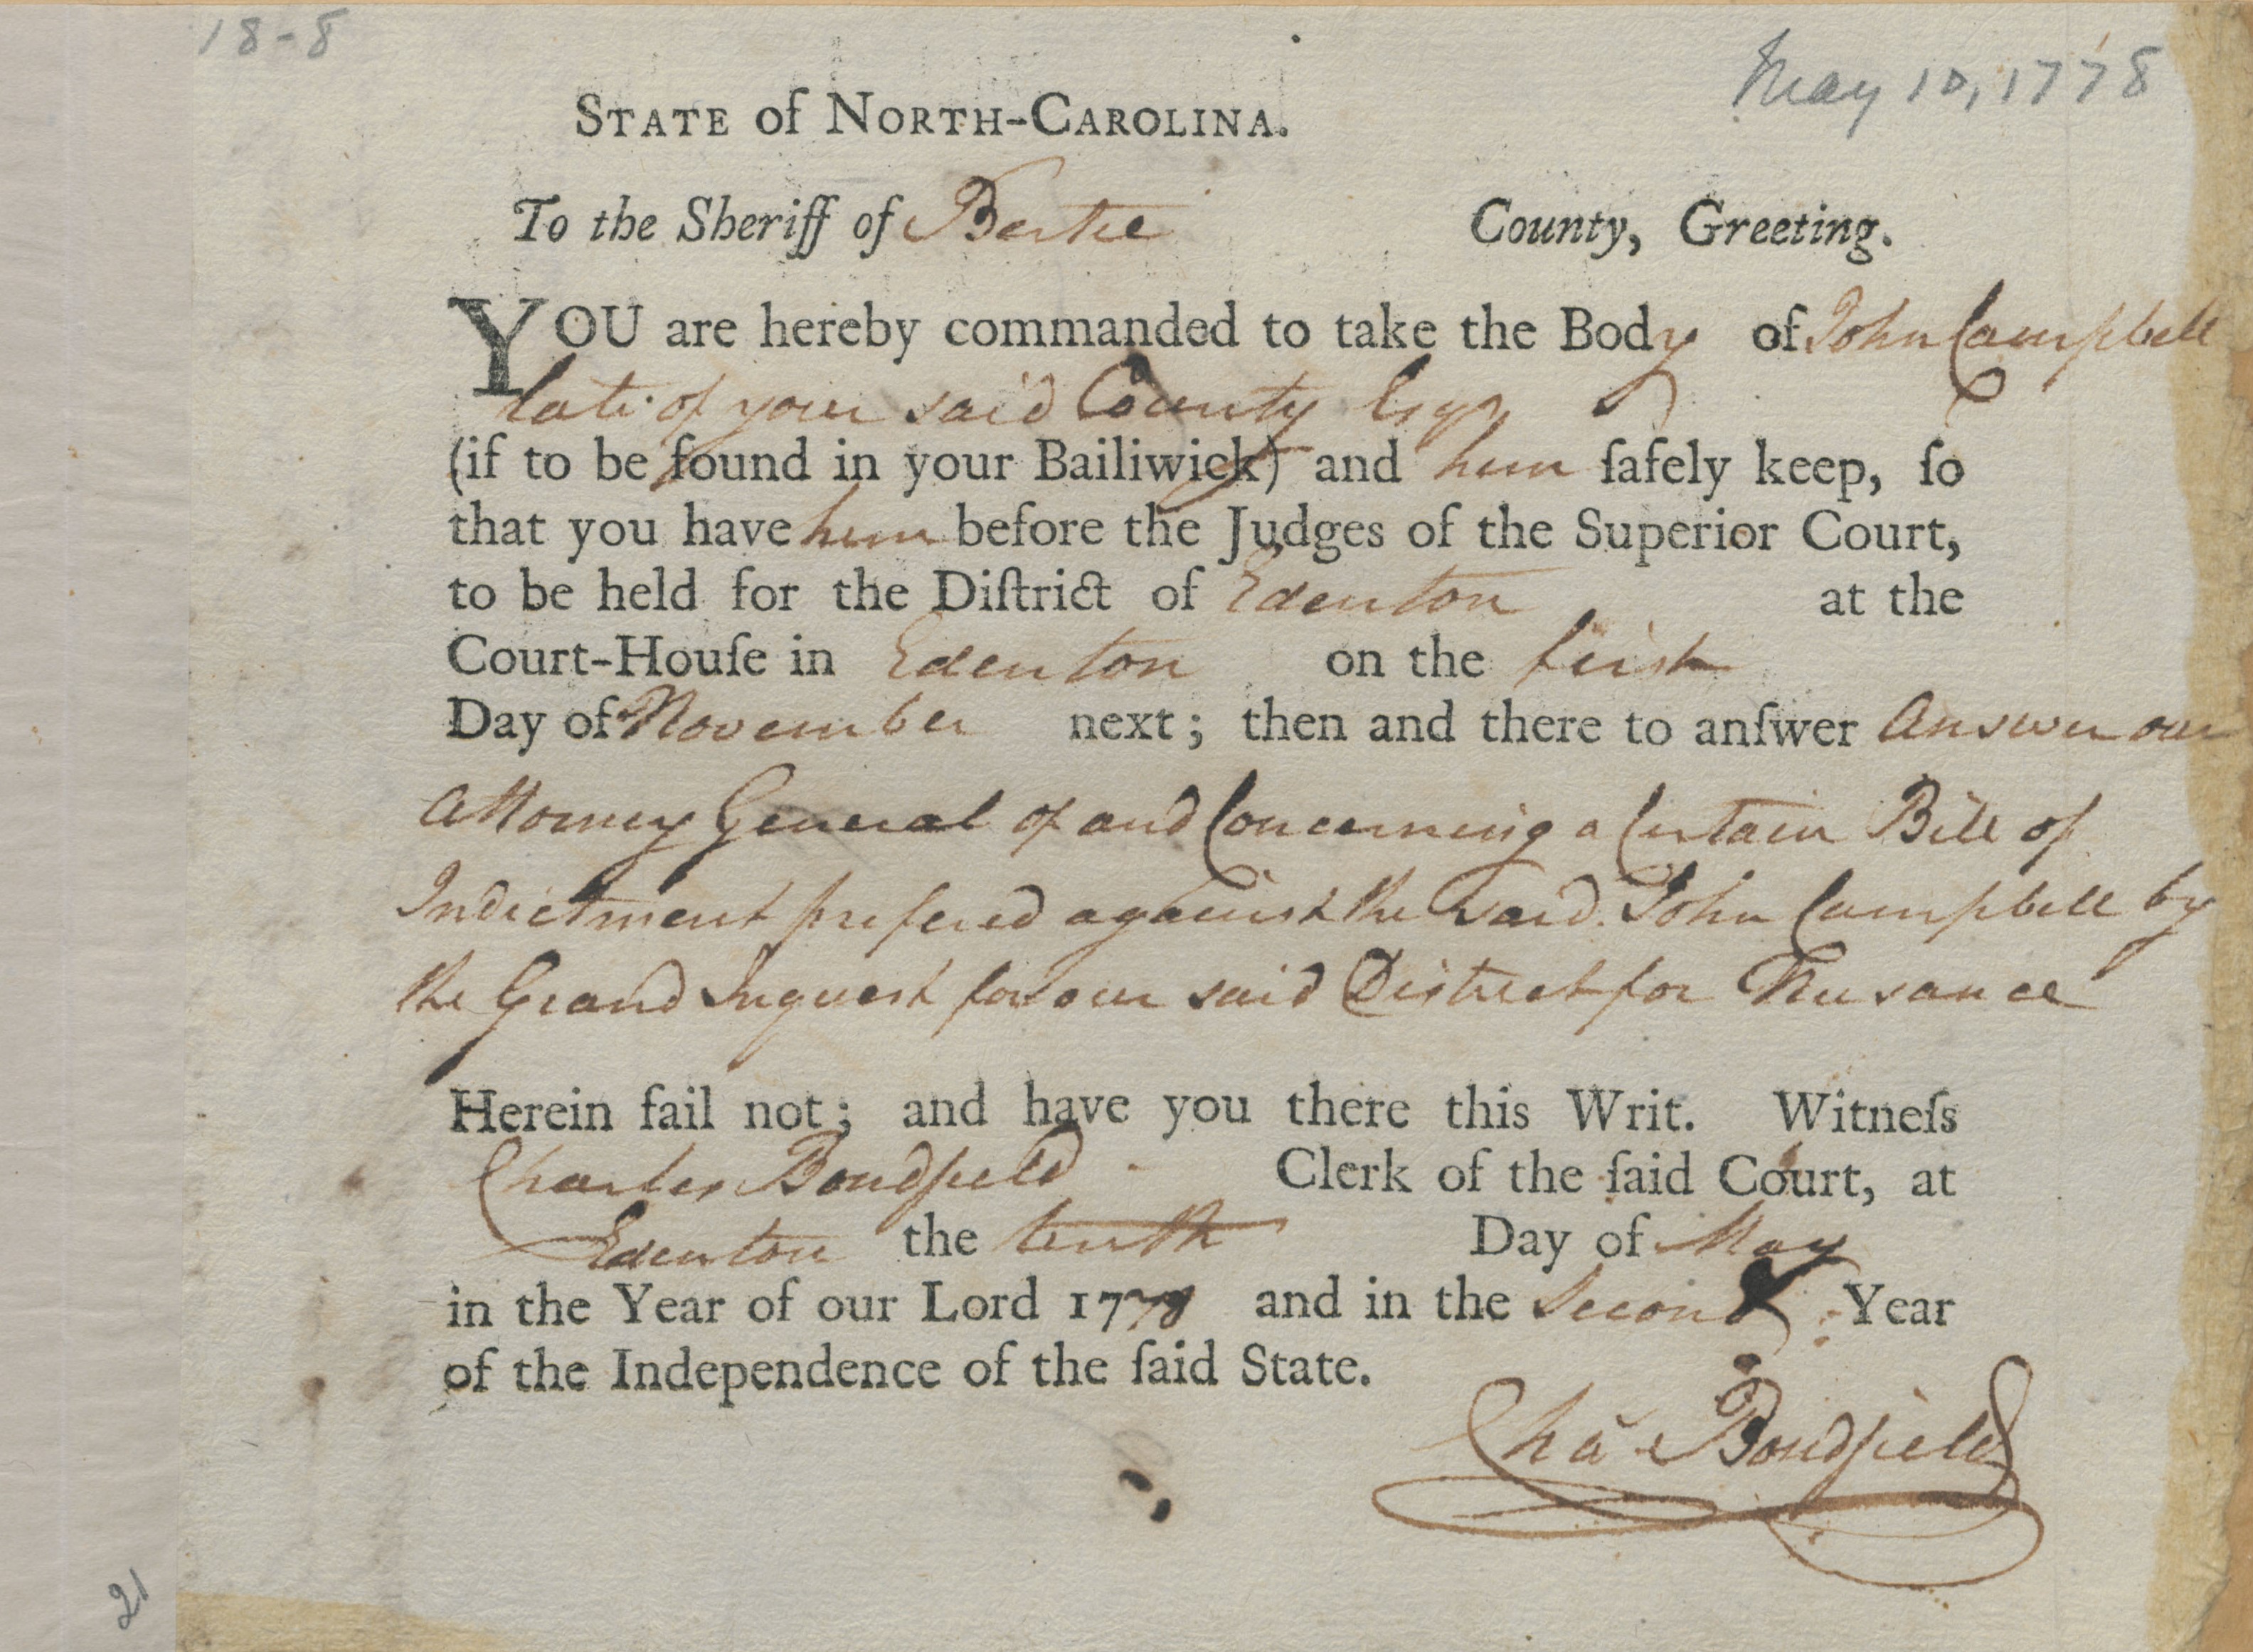 18-8
May 10, 1778
STATE of NORTH-CAROLINA.
To the Sheriff of Bertie County, Greeting.
YOU are hereby commanded to take the Body of John Campbell
late of your said County Esqr
(if to be found in your Bailiwick) and him ſafely keep, ſo
that you have him before the Judges of the Superior Court,
to be held for the Diſtrict of Edenton at the
Court-Houſe in Edenton on the first
Day of November next; then and there to anſwer Answer our
Attorney General of and Concerning a Certain Bill of
Indictment prefered against the said John Campbell by
the Grand Inquest for our said District for Nusance
Herein fail not; and have you there this Writ. Witneſs
Charles Bondfield Clerk of the ſaid Court, at
Edenton the tenth Day of May
in the Year of our Lord 1778 and in the Second Year
of the Independence of the ſaid State.
Chas Bondfield
21